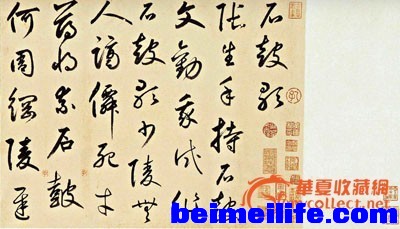 石鼓歌
張生手持石鼓
文勸我試作
石鼓歌少陵無
人謫僊死才
薄將奈石鼓
何周綱陵遲
華夏收藏網
collect.net
beimeilife.com